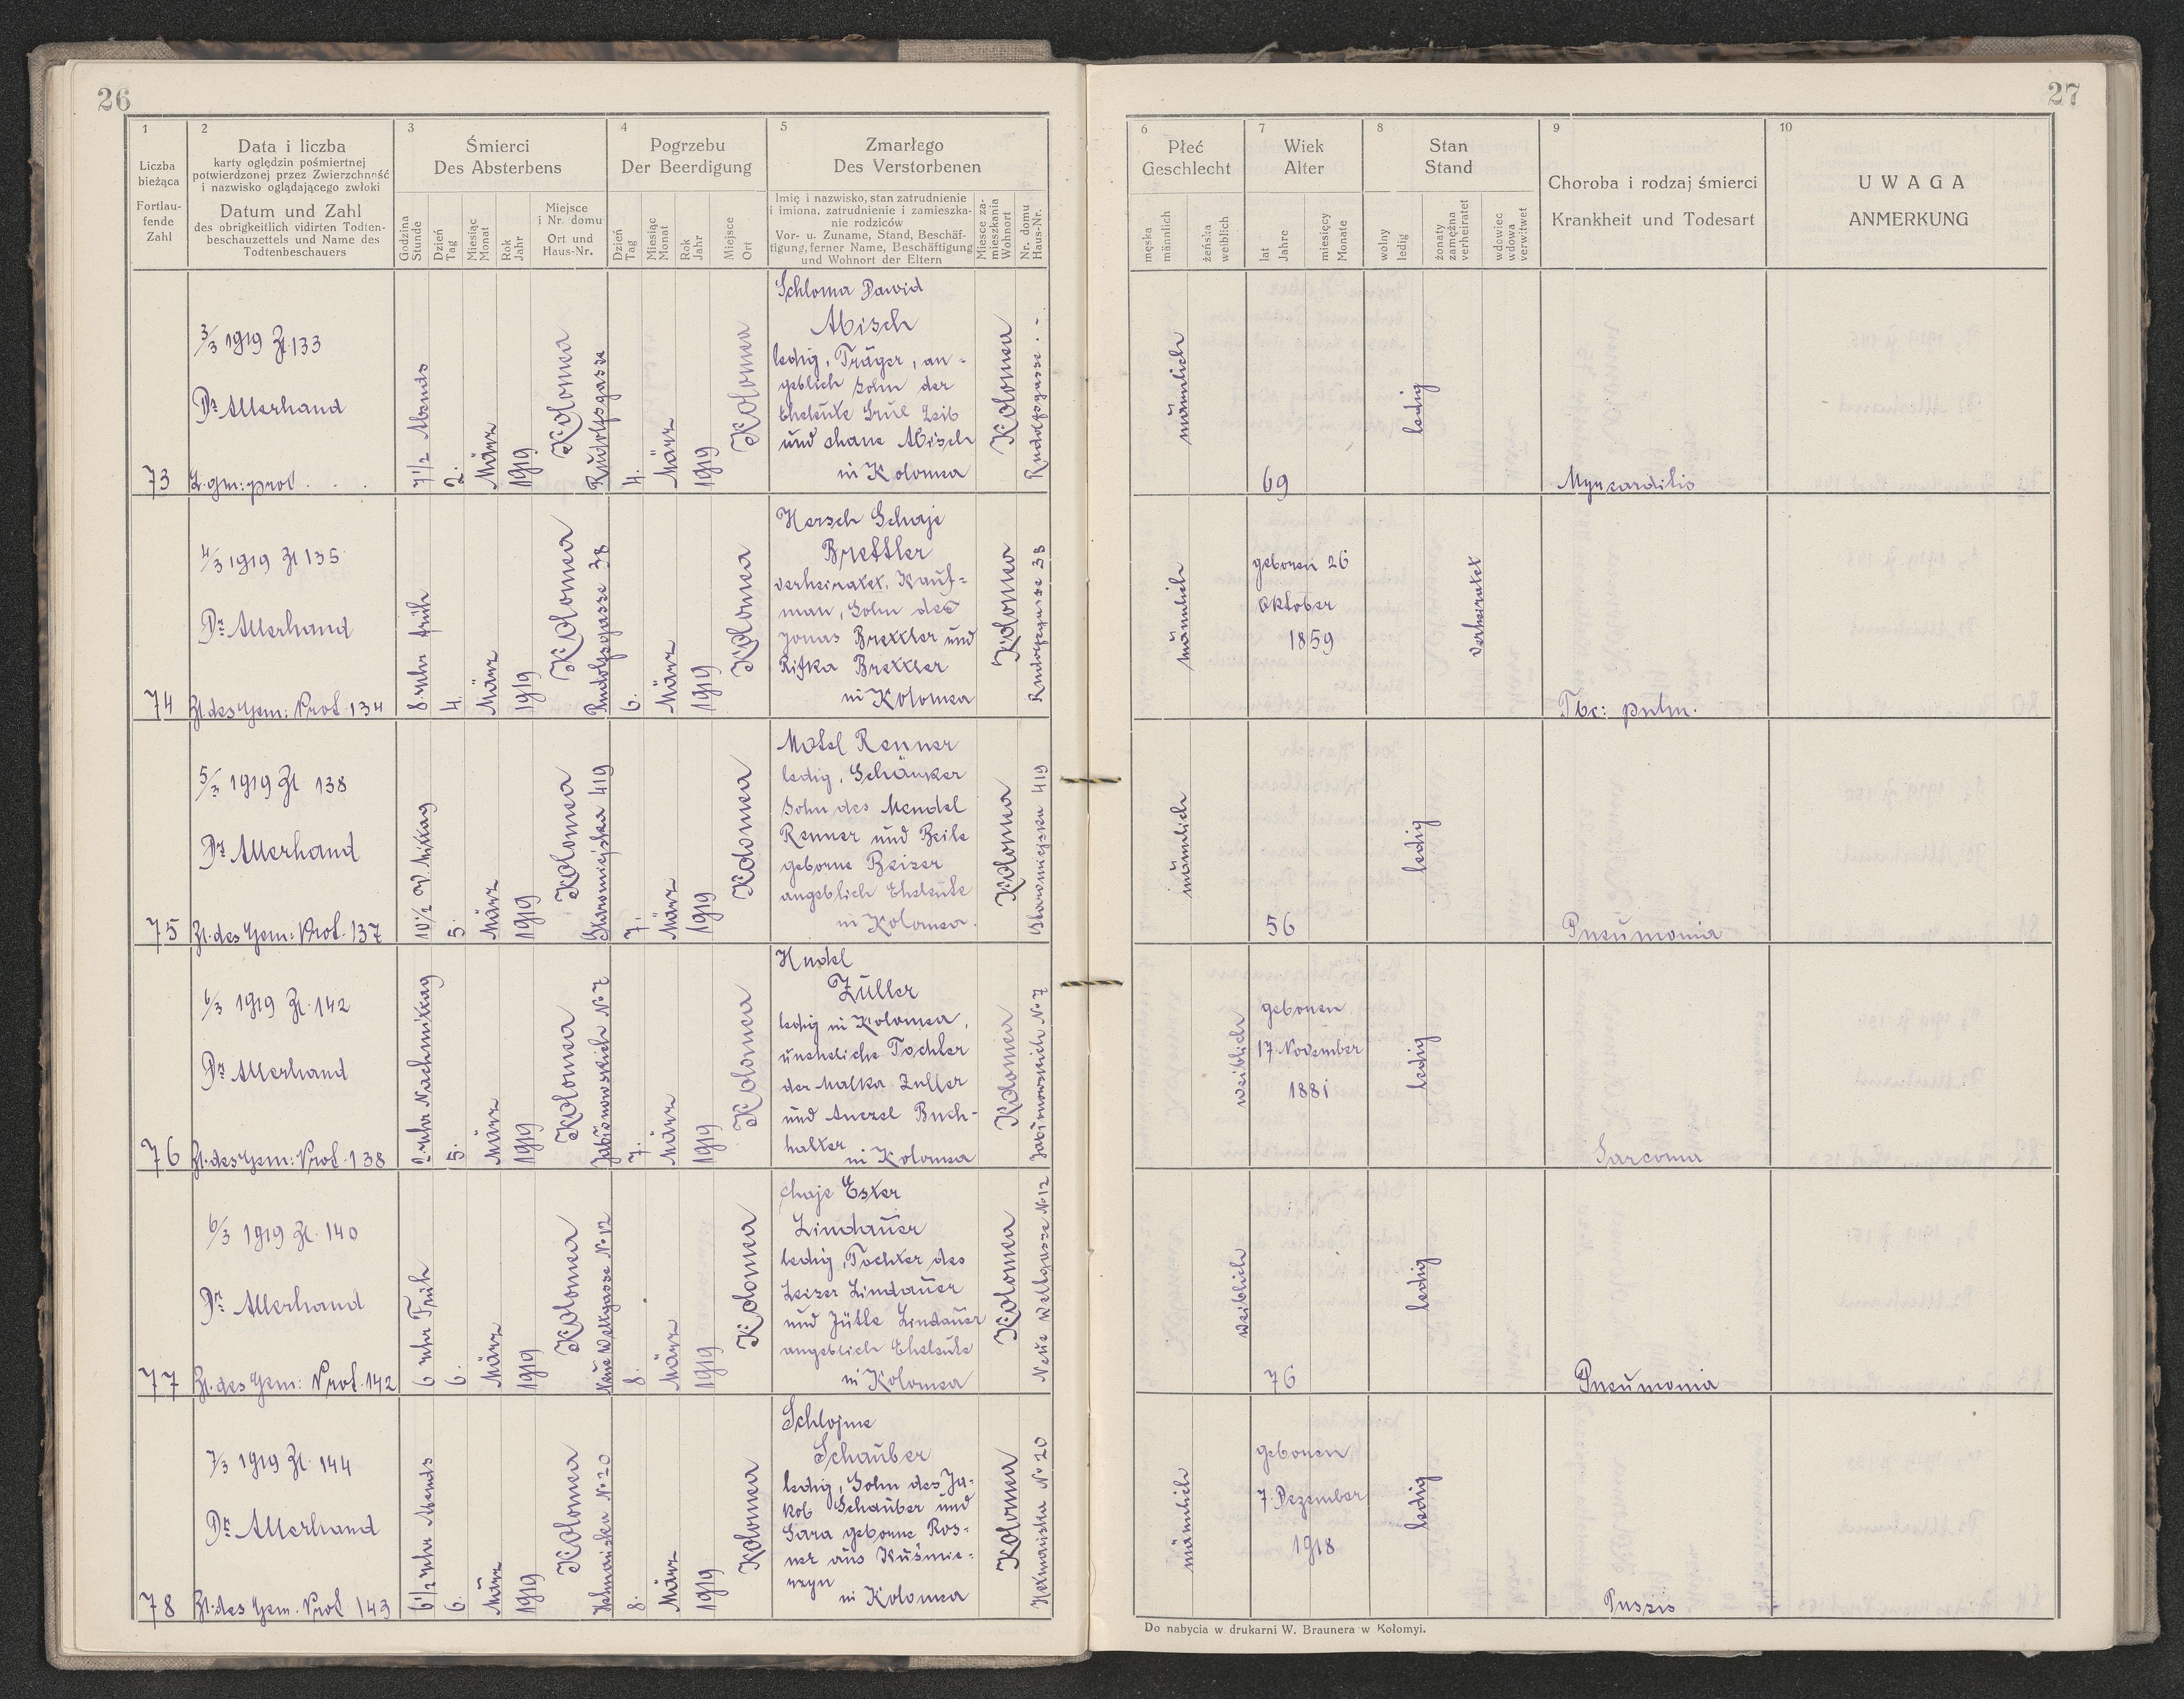 26
1
Liczba
bieżąca
Fortlau-
fende
Zahl
2
Data i liczba
karty oględzin pośmiertnej
potwierdzonej przez Zwierzchność
i nazwisko oglądającego zwłoki
Datum und Zahl
des obrigkeitlich vidirten Todten-
beschauzettels und Name des
Todtenbeschauers
3
Śmierci
Des Absterbens
Godzina
Stunde
Dzień
Tag
Miesiąc
Monat
Rok
Jahr
Miejsce
i Nr. domu
Ort und
Haus-Nr.
4
Pogrzebu
Der Beerdigung
Dzień
Tag
Miesiąc
Monat
Rok
Jahr
Miejsce
Ort
5
Zmarłego
Des Verstorbenen
Imię i nazwisko, stan zatrudnienie
i imiona, zatrudnienie i zamieszka-
nie rodziców
Vor- u. Zuname, Stand, Beschäf-
tigung, ferner Name, Beschäftigung
und Wohnort der Eltern
Miesce za-
mieszkania
Wohnort
Nr. domu
Haus-Nr.
73
3/3 1919 Zl. 133
Dr Allerhand
Z. gm: prot . . .
7 1/2 Abends
2.
März
1919
Kolomea
Rudolfsgasse
4.
März
1919
Kolomea
Schloma Dawid
Abisch
ledig, Träger, an-
geblich Sohn der
Eheleute Srul Leib
und Chane Abisch
in Kolomea
Kolomea
Rudolfsgasse . -
74
4/3 1919 Zl 135
Dr Allerhand
Zl. des Gem: Prot. 134
8 Uhr früh
4.
März
1919
Kolomea
Rudolfsgasse 38
6.
März
1919
Kolomea
Hersch Schaje
Brettler
verheiratet, Kauf-
man, Sohn des
Jonas Brettler und
Rifka Brettler
in Kolomea
Kolomea
Rudolfsgasse 38
75
5/3 1919 Zl. 138
Dr Allerhand
Zl. des Gem: Prot. 137
10 1/2 V. Mittag
5.
März
1919
Kolomea
Staromiejska 419
7.
März
1919
Kolomea
Motel Renner
ledig, Schänker
Sohn des Mendel
Renner und Beile
geborne Beiser
angeblich Eheleute
in Kolomea.
Kolomea
Staromiejska 419
76
6/3 1919 Zl. 142
Dr Allerhand
Zl. des Gem: Prot. 138
2 Uhr Nachmittag
5.
März
1919
Kolomea
7.
März
1919
Kolomea
Hudel
Züller
ledig in Kolomea,
uneheliche Tochter
der Malka Zuller
und Anczel Buch-
halter
in Kolomea
Kolomea
77
6/3 1919 Zl. 140
Dr Allerhand
Zl. des Gem: Prot. 142
6 Uhr Früh
6.
März
1919
Kolomea
Neue Weltgasse No 12
8.
März
1919
Kolomea
Chaje Ester
Lindauer
ledig, Tochter des
Leiser Lindauer
und Jütte Lindauer
angeblich Eheleute
in Kolomea
Kolomea
Neue Weltgasse No 12
78
7/3 1919 Zl. 144
Dr Allerhand
Zl. des Gem. Prot 143
6 1/2 Uhr Abends
6.
März
1919
Kolomea
Hetmańska No 20
8.
März
1919
Kolomea
Schlojme
Schauber
ledig, Sohn des Ja-
kob Schauber und
Sara geborne Ros-
ner aus
in Kolomea
Kolomea
Hetmańska No 20
27
6
Płeć
Geschlecht
męska
männlich
żeńska
weiblich
7
Wiek
Alter
lat
Jahre
miesięcy
Monate
8
Stan
Stand
wolny
ledig
żonaty
zamężna
verheiratet
wdowiec
wdowa
verwitwet
9
Choroba i rodzaj śmierci
Krankheit und Todesart
10
UWAGA
ANMERKUNG
männlich
69
ledig
Myocarditis
männlich
geboren 26
Oktober
1859
verheiratet
Tbc: pulm.
männlich
56
ledig
Pneumonia
weiblich
geboren
17 November
1881
ledig
Sarcoma
weiblich
76
ledig
Pneumonia
männlich
geboren
7. Dezember
1918
ledig
Do nabycia w drukarni W. Braunera w Kołomyi.